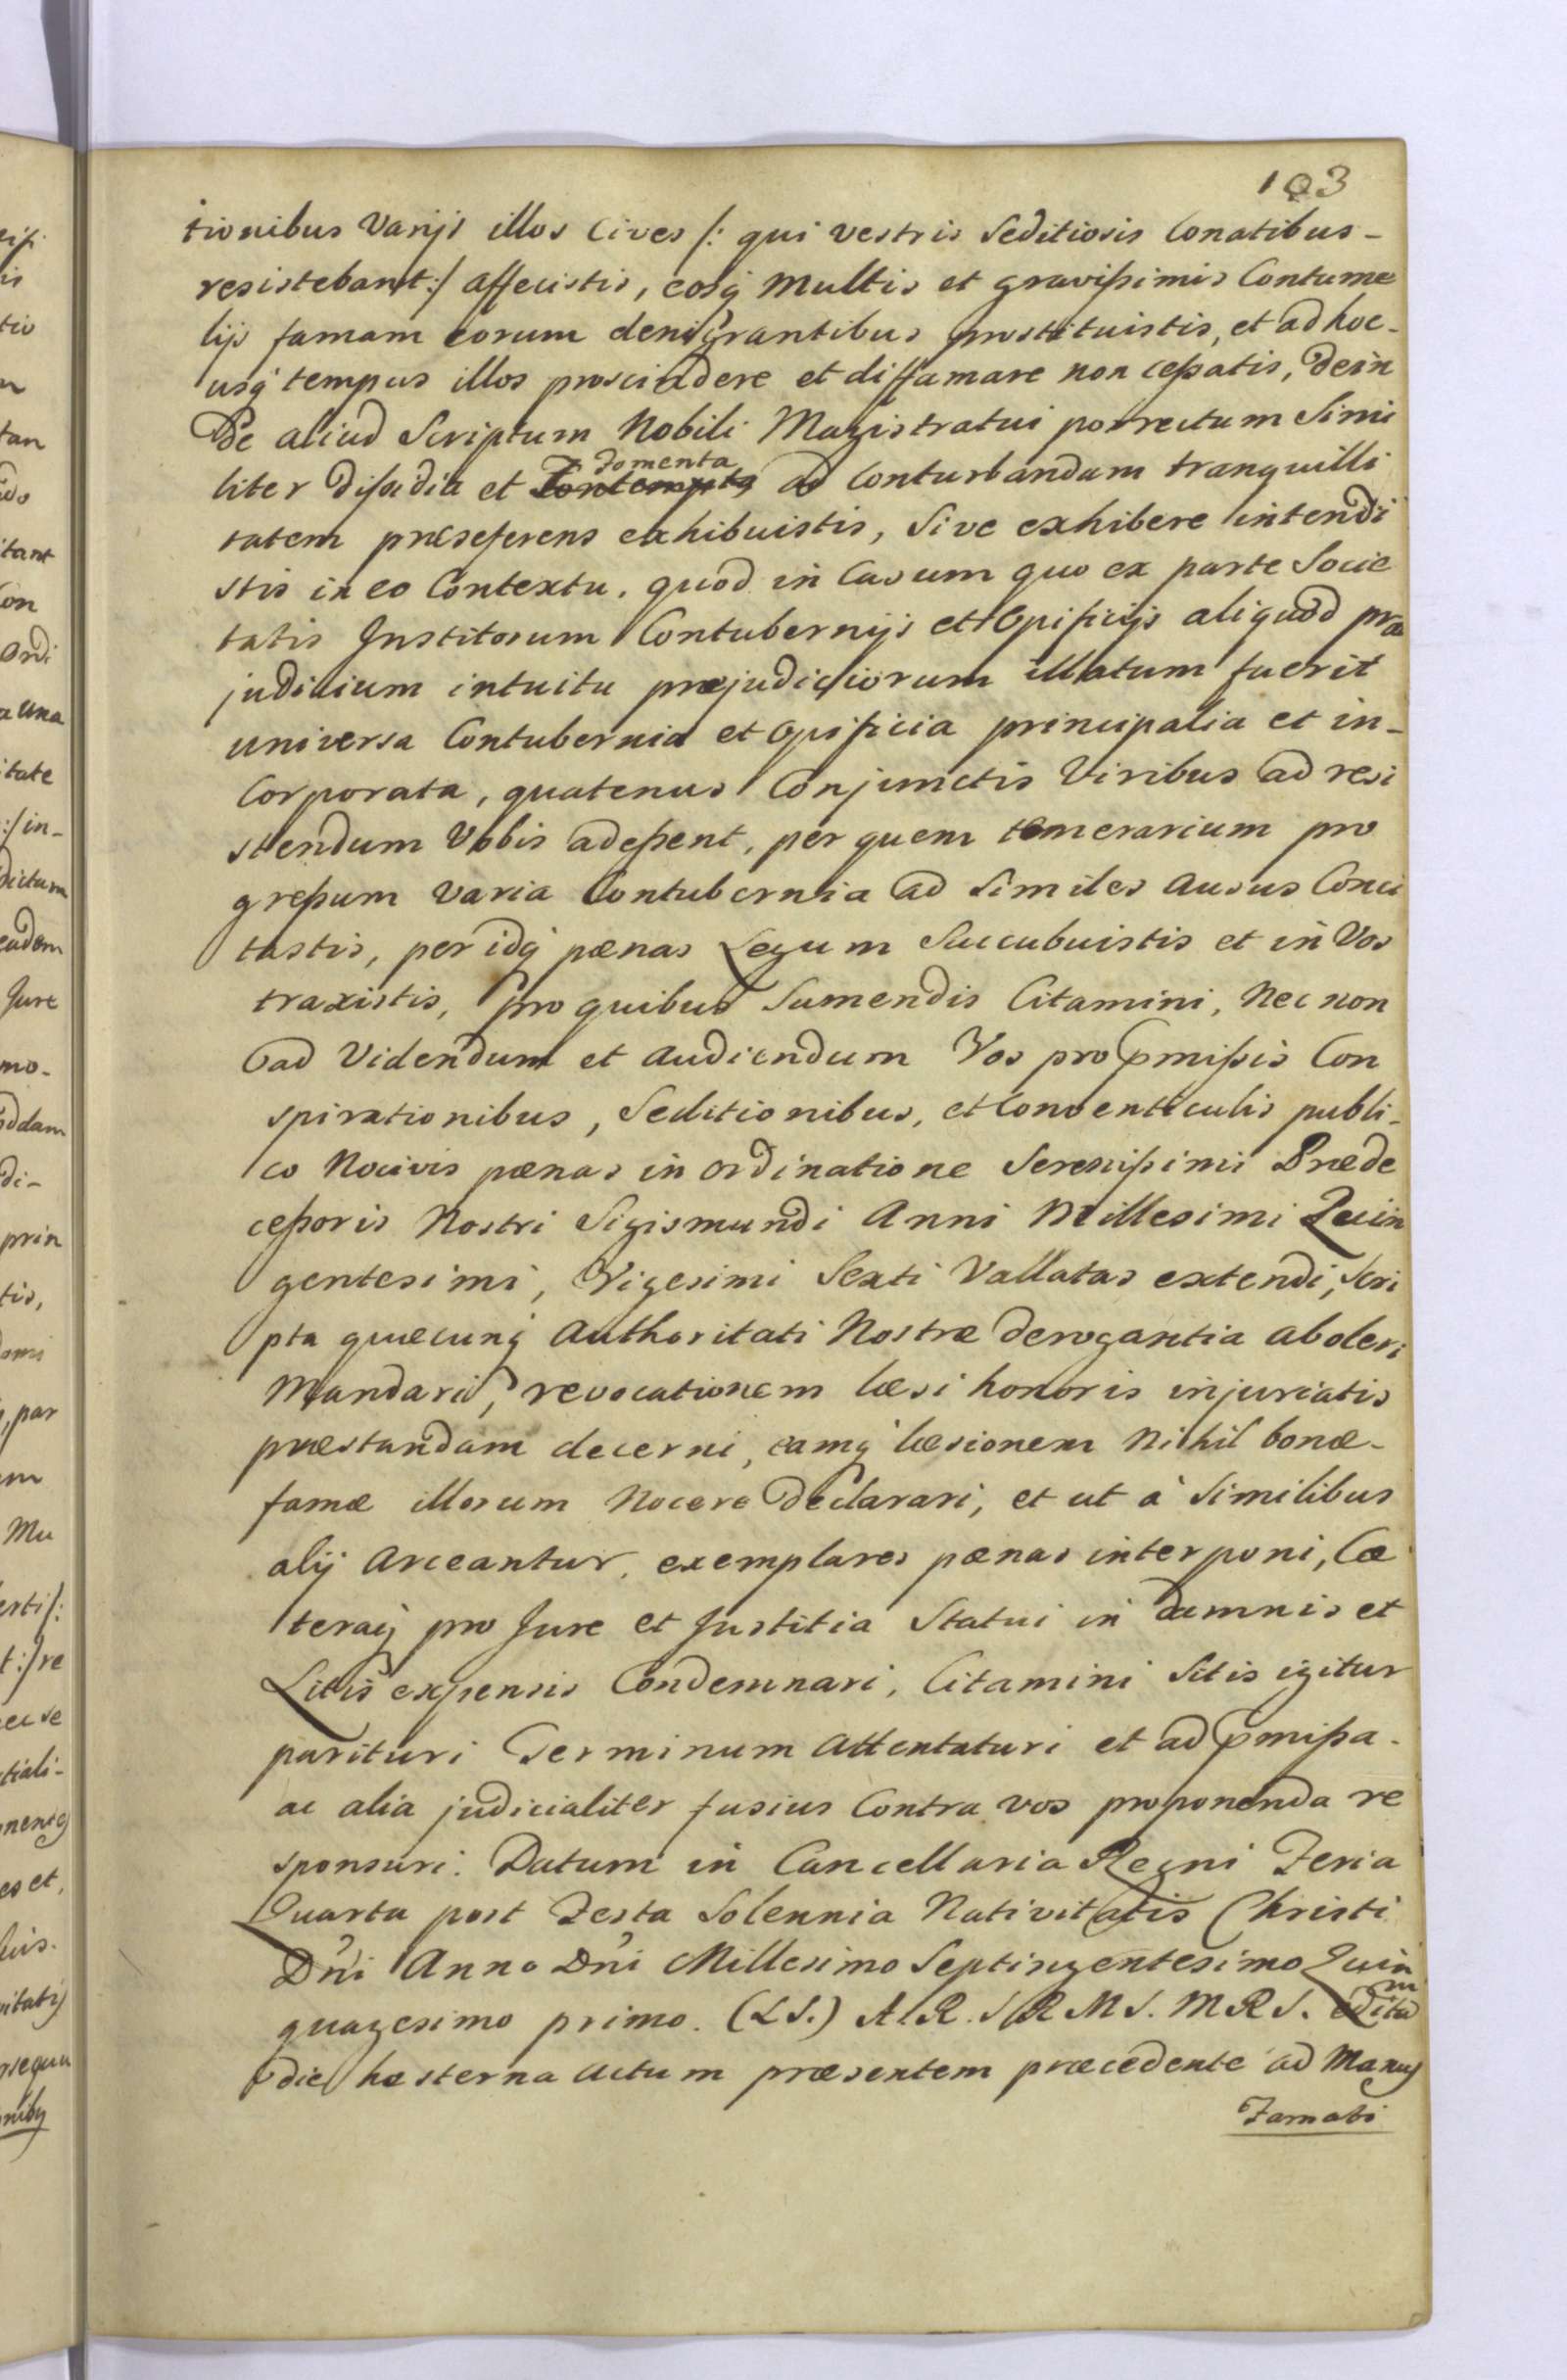 103
tionibus Varijs illos Cives /: qui vestris Seditiosis Conatibus-
resistebant :/ affecistis, eosq́ multis et gravißimis Contume
lijs famam eorum denigrantibus prostituistis, et ad hoc-
usq́ tempus illos proscindere et diffamare non ceßatis, dein
de aliud Scriptum Nobili Magistratui porrectum Simi
liter dißidia et fomenta ad Conturbandam tranquilli
tatem præseferens exhibuistis, Sive exhibere intendi
stis in eo Contextu, quod in Casum quo ex parte Socie
tatis Institorum Contubernijs et Opificijs aliquod præ
judicium intuitu præjudiciorum illatum fuerit
universa Contubernia et Opificia principalia et in-
Corporata, quatenus Conjunctis Viribus ad resi
stendum Vobis adeßent, per quem temerarium pro
greßum varia Contubernia ad Similes Ausus Conci
tastis, per idq́ pænas Legum Succubuistis et in Vos
traxistis, pro quibus Sumendis Citamini, Nec non
ad Videndum et Audiendum Vos pro pmißis Con
spirationibus, Seditionibus, et Conventiculis publi-
co Nocivis pænas in ordinatione Serenißimi Præde
ceßoris Nostri Sigismundi Anni Millesimi Quin
gentesimi, Vigesimi Sexti Vallatas extendi, Scri
pta quæcunq́ Authoritati Nostræ derogantia aboleri
Mandari, revocationem læsi honoris injuriatis
præstandam decerni, eamq́ læsionem Nihil bonæ-
famæ illorum Nocere declarari, et ut à Similibus
alij Arceantur, exemplares pænas interponi, Cæ
teraq́ pro Jure et Justitia Statui in damnis et
Litis expensis Condemnari, Citamini Sitis igitur
parituri Terminum Attentaturi et ad pmißa-
ac alia judicialiter fusius Contra vos proponenda re
sponsuri. Datum in Cancellaria Regni Feria
Quarta post Festa Solennia Nativitatis Christi
Dn̄i Anno Dn̄i Millesimo Septingentesimo Quin
quagesimo primo. (LS.) A.R. S R M S. M R S.
die hesterna Actum præsentem præcedente ad Manus
Famati